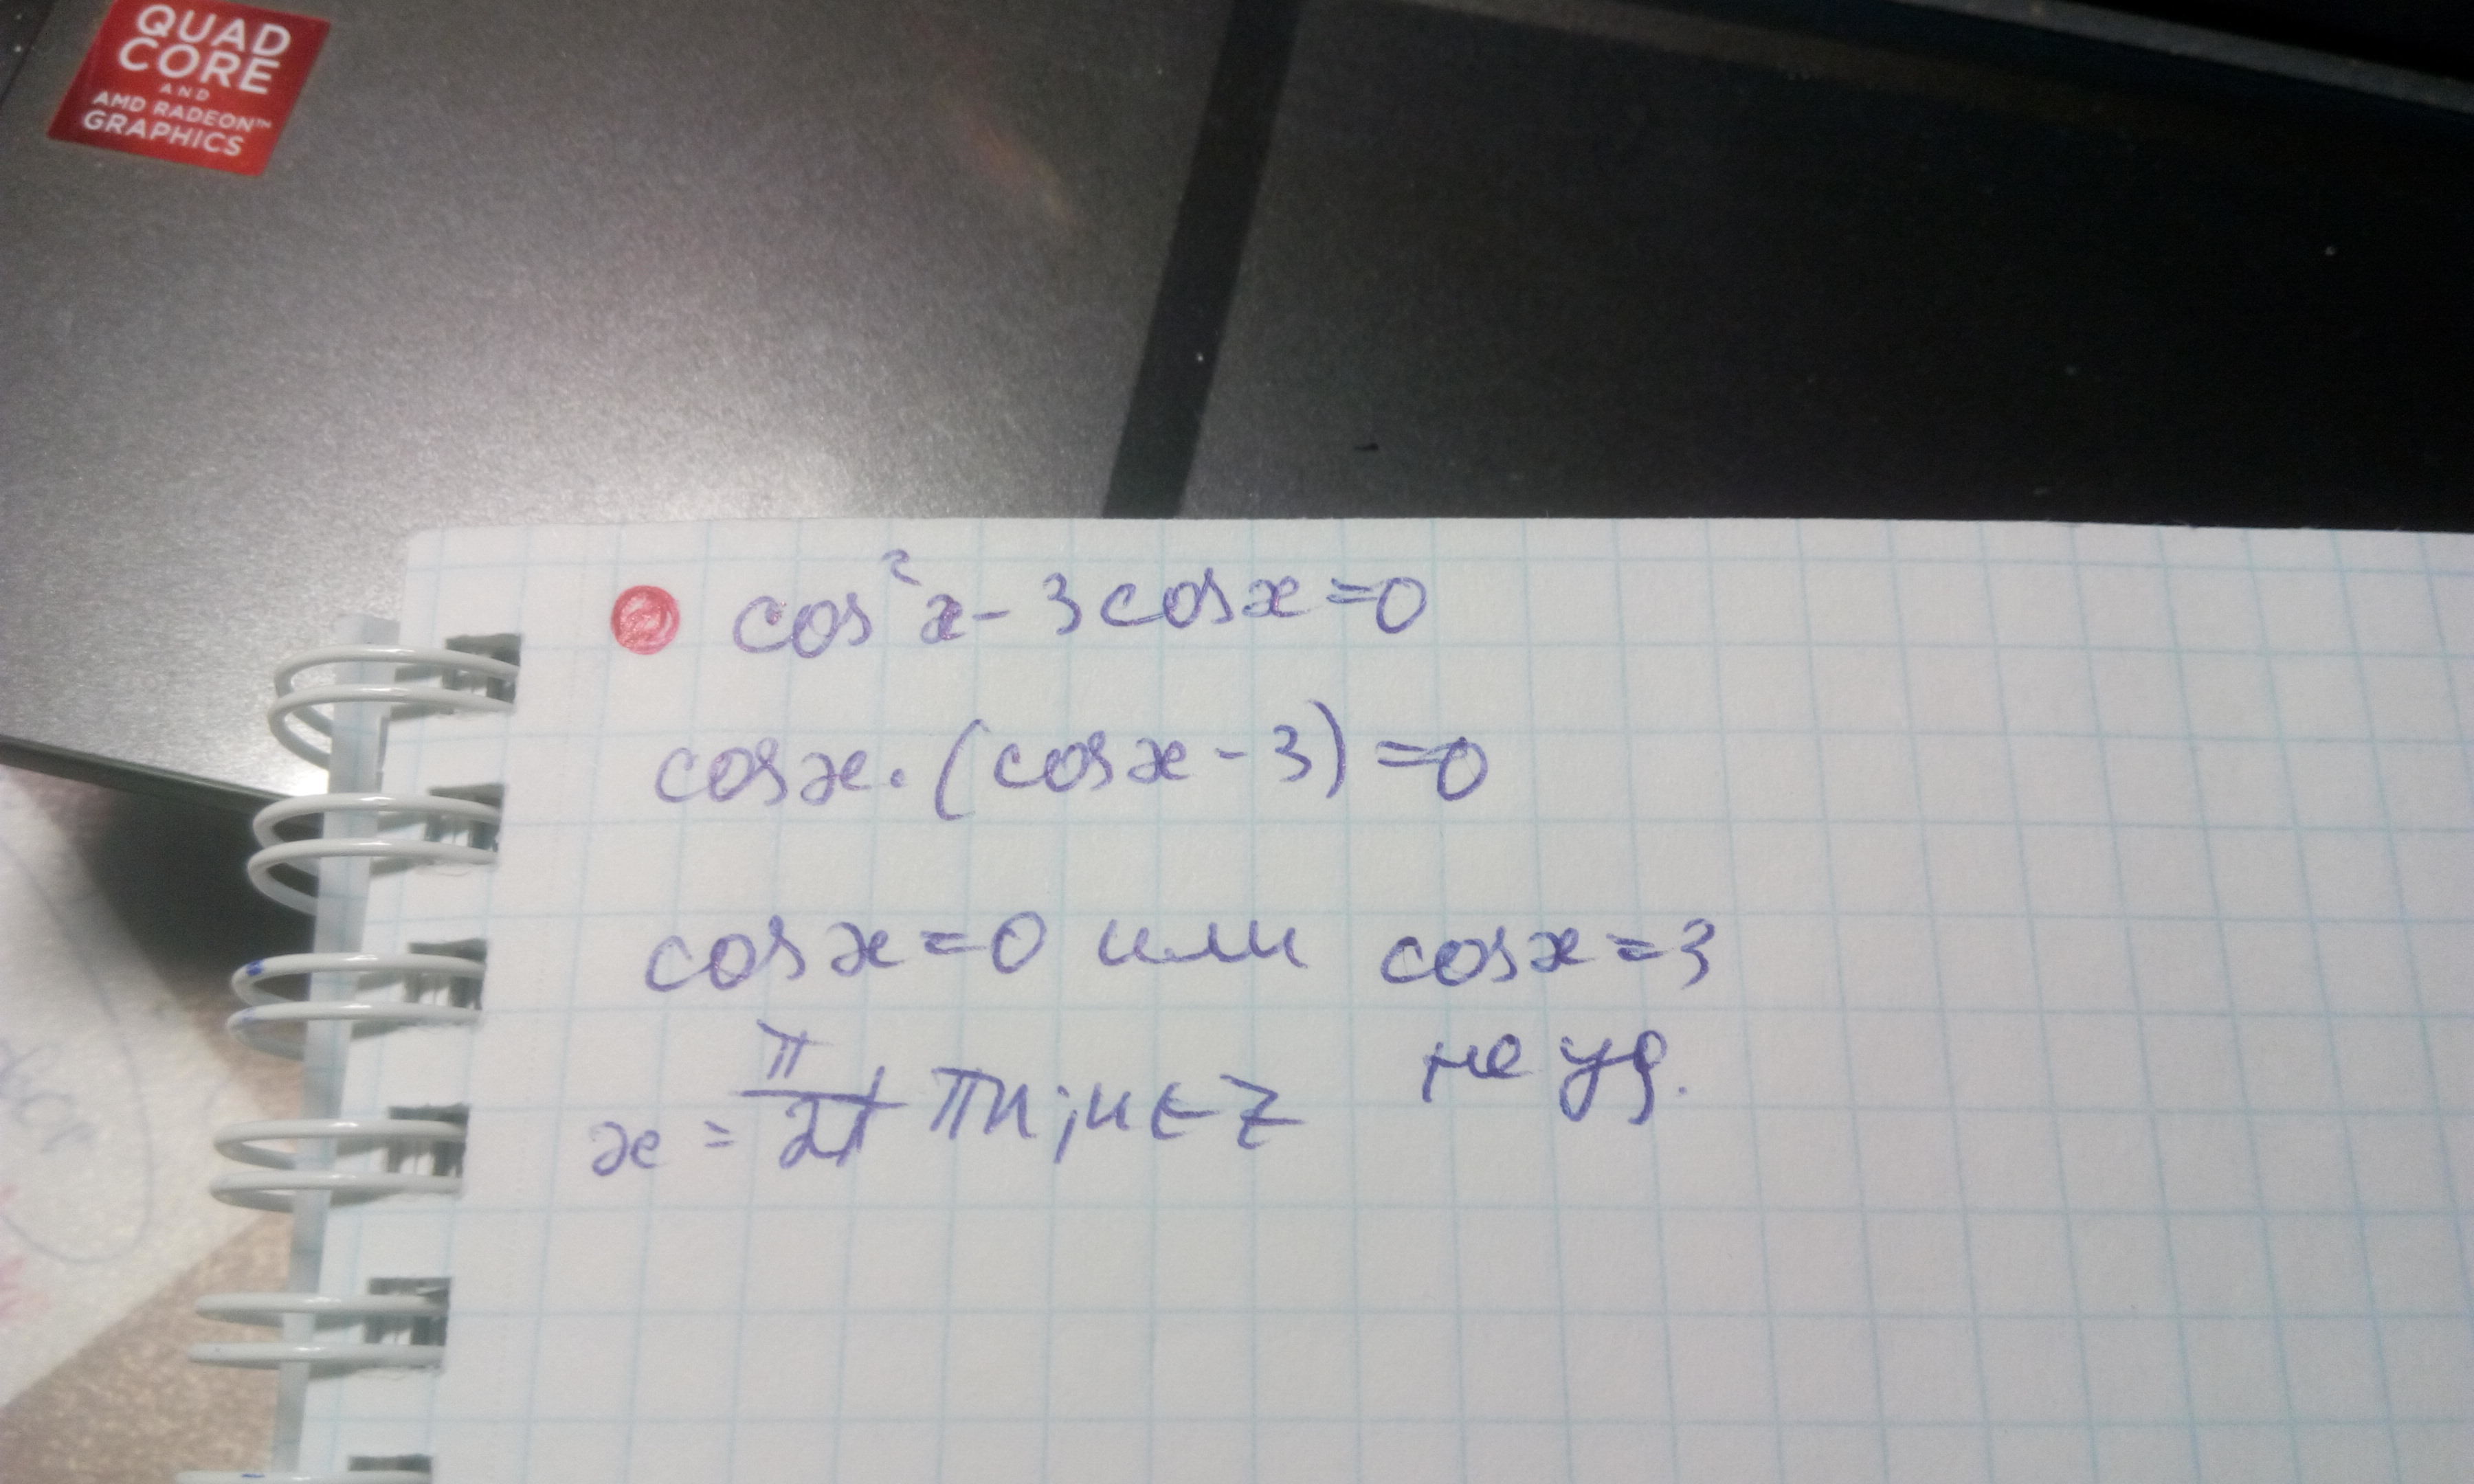 QUAD
CORE
AND
AMD RADEON™
GRAPHICS
cos²x - 3cosx=0
cosx·(cosx-3)=0
cosx=0 или cosx=3
x = π/2 + πn; n ∈ Z не уд.